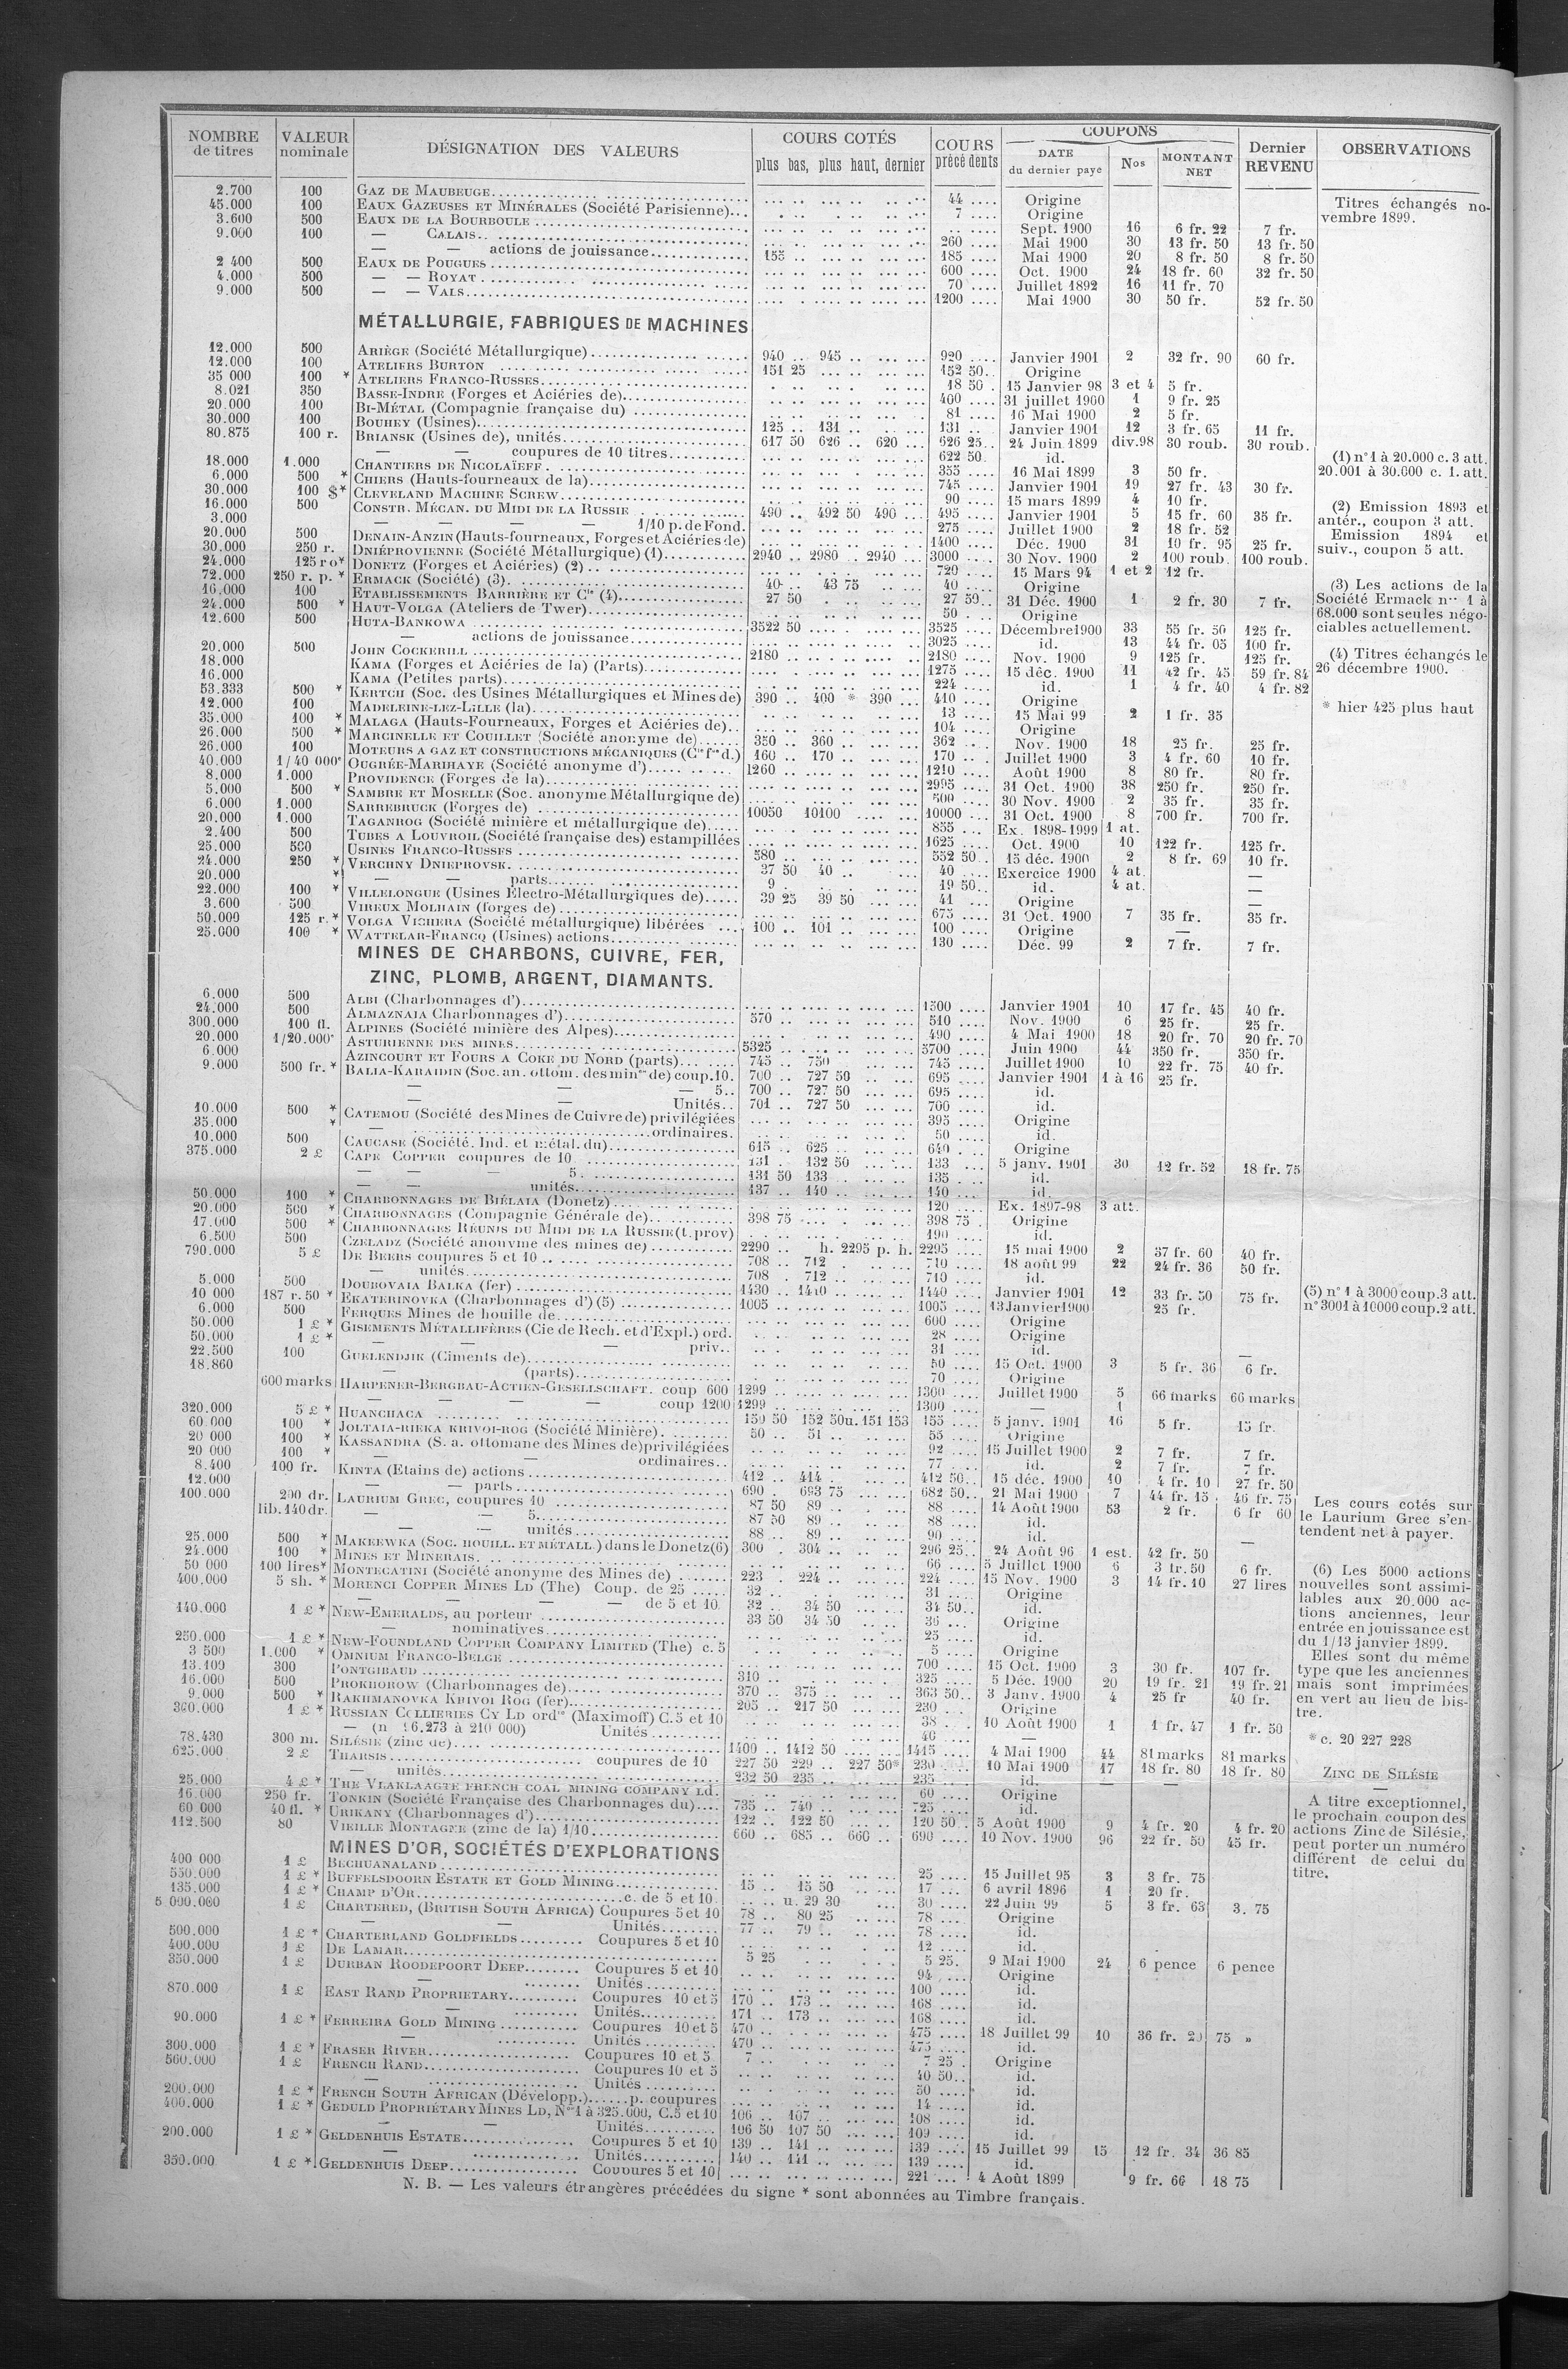 NOMBRE de titres | VALEUR nominale | DÉSIGNATION DES VALEURS | COURS COTÉS plus bas, plus haut, dernier | COURS précédents | COUPONS DATE du dernier paye | Nos | MONTANT NET | Dernier REVENU | OBSERVATIONS
2.700 100 GAZ DE MAUBEUGE 44 Origine
45.000 100 EAUX GAZEUSES ET MINÉRALES (Société Parisienne) 7 Origine
3.600 500 EAUX DE LA BOURBOULE Sept. 1900 16 6 fr. 22 7 fr.
9.000 100 — CALAIS 260 Mai 1900 30 13 fr. 50 13 fr. 50
— — actions de jouissance 155 185 Mai 1900 20 8 fr. 50 8 fr. 50
2 400 500 EAUX DE POUGUES 600 Oct. 1900 24 18 fr. 60 32 fr. 50
4.000 500 — — ROYAT 70 Juillet 1892 16 11 fr. 70
9.000 500 — — VALS 1200 Mai 1900 30 50 fr. 52 fr. 50
Titres échangés novembre 1899.
MÉTALLURGIE, FABRIQUES DE MACHINES
12.000 500 ARIÈGE (Société Métallurgique) 940 945 920 Janvier 1901 2 32 fr. 90 60 fr.
12.000 100 ATELIERS BURTON 151 25 152 50 Origine
35 000 100 * ATELIERS FRANCO-RUSSES 18 50 15 Janvier 98 3 et 4 5 fr.
8.021 350 BASSE-INDRE (Forges et Aciéries de) 400 31 juillet 1900 1 9 fr. 25
20.000 100 BI-MÉTAL (Compagnie française du) 81 16 Mai 1900 2 5 fr.
30.000 100 BOUHEY (Usines) 125 131 131 Janvier 1901 12 3 fr. 65 11 fr.
80.875 100 r. BRIANSK (Usines de), unités 617 50 626 620 626 25 24 Juin 1899 div.98 30 roub. 30 roub.
— — coupures de 10 titres 622 50 id.
18.000 1.000 CHANTIERS DE NICOLAÏEFF 355 16 Mai 1899 3 50 fr.
6.000 500 * CHIERS (Hauts-fourneaux de la) 745 Janvier 1901 19 27 fr. 43 30 fr.
30.000 100 $* CLEVELAND MACHINE SCREW 90 15 mars 1899 4 10 fr.
16.000 500 CONSTR. MÉCAN. DU MIDI DE LA RUSSIE 490 492 50 490 495 Janvier 1901 5 15 fr. 60 35 fr.
3.000 — — — — 1/10 p. de Fond. 275 Juillet 1900 2 18 fr. 52
20.000 500 DENAIN-ANZIN (Hauts-fourneaux, Forges et Aciéries de) 1400 Déc. 1900 31 19 fr. 95 25 fr.
30.000 250 r. DNIÉPROVIENNE (Société Métallurgique) (1) 2940 2980 2940 3000 30 Nov. 1900 2 100 roub. 100 roub.
24.000 125 r o* DONETZ (Forges et Aciéries) (2) 720 15 Mars 94 1 et 2 12 fr.
72.000 250 r. p. * ERMACK (Société) (3) 40 43 75 40 Origine
16.000 100 ETABLISSEMENTS BARRIÈRE ET Cie (4) 27 50 27 50 31 Déc. 1900 1 2 fr. 30 7 fr.
24.000 500 * HAUT-VOLGA (Ateliers de Twer) 50 Origine
12.600 500 HUTA-BANKOWA 3522 50 3525 Décembre 1900 33 55 fr. 50 125 fr.
— actions de jouissance 3025 id. 13 44 fr. 05 100 fr.
20.000 500 JOHN COCKERILL 2180 2180 Nov. 1900 9 125 fr. 125 fr.
18.000 KAMA (Forges et Aciéries de la) (Parts) 1275 15 déc. 1900 11 42 fr. 45 59 fr. 84
16.000 KAMA (Petites parts) 224 id. 1 4 fr. 40 4 fr. 82
53.333 500 * KERTCH (Soc. des Usines Métallurgiques et Mines de) 390 400 * 390 410 Origine
12.000 100 MADELEINE-LEZ-LILLE (la) 13 15 Mai 99 2 1 fr. 35
35.000 100 * MALAGA (Hauts-Fourneaux, Forges et Aciéries de) 104 Origine
26.000 500 * MARCINELLE ET COUILLET (Société anonyme de) 350 360 362 Nov. 1900 18 25 fr. 25 fr.
26.000 100 MOTEURS A GAZ ET CONSTRUCTIONS MÉCANIQUES (Cie fse d.) 160 170 170 Juillet 1900 3 4 fr. 60 10 fr.
40.000 1/40 000e OUGRÉE-MARIHAYE (Société anonyme d') 1260 1210 Août 1900 8 80 fr. 80 fr.
8.000 1.000 PROVIDENCE (Forges de la) 2995 31 Oct. 1900 38 250 fr. 250 fr.
5.000 500 * SAMBRE ET MOSELLE (Soc. anonyme Métallurgique de) 500 30 Nov. 1900 2 35 fr. 35 fr.
6.000 1.000 SARREBRUCK (Forges de) 10050 10100 10000 31 Oct. 1900 8 700 fr. 700 fr.
20.000 1.000 TAGANROG (Société minière et métallurgique de) 855 Ex. 1898-1999 1 at.
2.400 500 TUBES A LOUVROIL (Société française des) estampillées 1625 Oct. 1900 10 122 fr. 125 fr.
25.000 500 USINES FRANCO-RUSSES 580 552 50 15 déc. 1900 2 8 fr. 69 10 fr.
24.000 250 * VERCHNY DNIEPROVSK 37 50 40 40 Exercice 1900 4 at. —
20.000 * — — parts 9 19 50 id. 4 at. —
22.000 100 * VILLELONGUE (Usines Électro-Métallurgiques de) 39 25 39 50 41 Origine —
3.600 500 VIREUX MOLHAIN (forges de) 675 31 Oct. 1900 7 35 fr. 35 fr.
50.000 125 r.* VOLGA VICHERA (Société métallurgique) libérées 100 101 100 Origine —
25.000 100 * WATTELAR-FRANCQ (Usines) actions 130 Déc. 99 2 7 fr. 7 fr.
(1) n° 1 à 20.000 c. 3 att.
20.001 à 30.000 c. 1. att.
(2) Emission 1893 et
antér., coupon 3 att.
Emission 1894 et
suiv., coupon 5 att.
(3) Les actions de la
Société Ermack nos 1 à
68.000 sont seules négo-
ciables actuellement.
(4) Titres échangés le
26 décembre 1900.
* hier 425 plus haut
MINES DE CHARBONS, CUIVRE, FER,
ZINC, PLOMB, ARGENT, DIAMANTS.
6.000 500 ALBI (Charbonnages d') 1500 Janvier 1901 10 17 fr. 45 40 fr.
24.000 500 ALMAZNAIA Charbonnages d') 570 510 Nov. 1900 6 25 fr. 25 fr.
300.000 100 fl. ALPINES (Société minière des Alpes) 490 4 Mai 1900 18 20 fr. 70 20 fr. 70
20.000 1/20.000e ASTURIENNE DES MINES 5325 5700 Juin 1900 44 350 fr. 350 fr.
6.000 AZINCOURT ET FOURS A COKE DU NORD (parts) 745 750 745 Juillet 1900 10 22 fr. 75 40 fr.
9.000 500 fr. * BALIA-KARAIDIN (Soc. an. ottom. des mines de) coup. 10. 700 727 50 695 Janvier 1901 1 à 16 25 fr.
— — — 5 700 727 50 695 id.
— — Unités 701 727 50 700 id.
10.000 500 * CATEMOU (Société des Mines de Cuivre de) privilégiées 395 Origine
35.000 * — ordinaires. 50 id.
10.000 500 CAUCASE (Société. Ind. et métal. du) 615 625 640 Origine
375.000 2 £ CAPE COPPER coupures de 10 131 132 50 133 5 janv. 1901 30 12 fr. 52 18 fr. 75
— — — 5 131 50 133 135 id.
— — unités 137 140 140 id.
50.000 100 * CHARBONNAGES DE BIÉLAIA (Donetz) 120 Ex. 1897-98 3 att.
20.000 500 * CHARBONNAGES (Compagnie Générale de) 398 75 398 75 Origine
17.000 500 * CHARBONNAGES RÉUNIS DU MIDI DE LA RUSSIE (t. prov) 190 id.
6.500 500 CZELADZ (Société anonyme des mines de) 2290 h. 2295 p. h. 2295 15 mai 1900 2 37 fr. 60 40 fr.
790.000 5 £ DE BEERS coupures 5 et 10 708 712 710 18 août 99 22 24 fr. 36 50 fr.
— unités 708 712 710 id.
5.000 500 DOUBOVAIA BALKA (fer) 1430 1440 1440 Janvier 1901 12 33 fr. 50 75 fr.
10 000 187 r. 50 * EKATERINOVKA (Charbonnages d') (5) 1005 1005 13 Janvier 1900 25 fr.
6.000 500 FERQUES Mines de houille de 600 Origine
50.000 1 £ * GISEMENTS MÉTALLIFÈRES (Cie de Rech. et d'Expl.) ord. 28 Origine
50.000 1 £ * — — — priv. 31 id. —
22.500 100 GUELENDJIK (Ciments de) 50 15 Oct. 1900 3 5 fr. 36 6 fr.
18.860 — (parts) 70 Origine
600 marks HARPENER-BERGBAU-ACTIEN-GESELLSCHAFT. coup 600 1299 1300 Juillet 1900 5 66 marks 66 marks
— — — — coup 1200 1299 1300 — 1
320.000 5 £ * HUANCHACA 150 50 152 50 u. 151 153 155 5 janv. 1901 16 5 fr. 15 fr.
60.000 100 * JOLTAIA-RIEKA KRIVOI-ROG (Société Minière) 50 51 55 Origine
20 000 100 * KASSANDRA (S. a. ottomane des Mines de) privilégiées 92 15 Juillet 1900 2 7 fr. 7 fr.
20 000 100 * — ordinaires 77 id. 2 7 fr. 7 fr.
8.400 100 fr. KINTA (Etains de) actions 412 414 412 50 15 déc. 1900 10 4 fr. 10 27 fr. 50
12.000 — — parts 690 693 75 682 50 21 Mai 1900 7 44 fr. 15 46 fr. 75
100.000 200 dr. LAURIUM GREC, coupures 10 87 50 89 88 14 Août 1900 53 2 fr. 6 fr 60
lib. 140 dr. — — 5 87 50 89 88 id.
— — unités 88 89 90 id. —
25.000 500 * MAKEEWKA (SOC. HOUILL. ET MÉTALL.) dans le Donetz (6) 300 304 296 25 24 Août 96 1 est. 42 fr. 50
24.000 100 * MINES ET MINERAIS 66 5 Juillet 1900 6 3 fr. 50 6 fr.
50 000 100 lires* MONTECATINI (Société anonyme des Mines de) 223 224 224 15 Nov. 1900 3 14 fr. 10 27 lires
400.000 5 sh. * MORENCI COPPER MINES LD (The) Coup. de 25 32 31 Origine
— — — — de 5 et 10 32 34 50 34 50 id.
140.000 1 £ * NEW-EMERALDS, au porteur 33 50 34 50 36 Origine
— nominatives 25 id.
250.000 1 £ * NEW-FOUNDLAND COPPER COMPANY LIMITED (The) c. 5 5 Origine
3 500 1.000 * OMNIUM FRANCO-BELGE 700 15 Oct. 1900 3 30 fr. 107 fr.
13.100 300 PONTGIBAUD 310 325 5 Déc. 1900 20 19 fr. 21 19 fr. 21
16.000 500 PROKHOROW (Charbonnages de) 370 375 363 50 3 Janv. 1900 4 25 fr 40 fr.
9.000 500 * RAKHMANOVKA KRIVOI ROG (fer) 205 217 50 230 Origine
360.000 1 £ * RUSSIAN COLLIERIES CY LD ordres (Maximoff) C. 5 et 10 38 10 Août 1900 1 1 fr. 47 1 fr. 50
— (n 6.273 à 210 000) Unités 40 —
78.430 300 m. SILÉSIE (zinc de) 1400 1412 50 1415 4 Mai 1900 44 81 marks 81 marks
625.000 2 £ THARSIS coupures de 10 227 50 229 227 50* 230 10 Mai 1900 17 18 fr. 80 18 fr. 80
— unités 232 50 235 235 id. — —
25.000 4 £ * THE VLAKLAAGTE FRENCH COAL MINING COMPANY Ld. 60 Origine
16.000 250 fr. TONKIN (Société Française des Charbonnages du) 735 740 725 id.
60 000 40 fl. * URIKANY (Charbonnages d') 122 122 50 120 50 5 Août 1900 9 4 fr. 20 4 fr. 20
112.500 80 VIEILLE MONTAGNE (zinc de la) 1/10 660 685 660 690 10 Nov. 1900 96 22 fr. 50 45 fr.
(5) n° 1 à 3000 coup. 3 att.
n° 3001 à 10000 coup. 2 att.
Les cours cotés sur
le Laurium Grec s'en-
tendent net à payer.
(6) Les 5000 actions
nouvelles sont assimi-
lables aux 20.000 ac-
tions anciennes, leur
entrée en jouissance est
du 1/13 janvier 1899.
Elles sont du même
type que les anciennes
mais sont imprimées
en vert au lieu de bis-
tre.
* c. 20 227 228
ZINC DE SILÉSIE
—
A titre exceptionnel,
le prochain coupon des
actions Zinc de Silésie,
peut porter un numéro
différent de celui du
titre.
MINES D'OR, SOCIÉTÉS D'EXPLORATIONS
400 000 1 £ BECHUANALAND 25 15 Juillet 95 3 3 fr. 75
550.000 1 £ * BUFFELSDOORN ESTATE ET GOLD MINING 15 15 50 17 6 avril 1896 1 20 fr.
135.000 1 £ * CHAMP D'OR c. de 5 et 10 u. 29 30 30 22 Juin 99 5 3 fr. 63 3. 75
5 000.000 1 £ CHARTERED, (BRITISH SOUTH AFRICA) Coupures 5 et 10 78 80 25 78 Origine
— — Unités 77 79 78 id.
500.000 1 £ * CHARTERLAND GOLDFIELDS Coupures 5 et 10 12 id.
400.000 1 £ DE LAMAR 5 25 5 25 9 Mai 1900 24 6 pence 6 pence
350.000 1 £ DURBAN ROODEPOORT DEEP Coupures 5 et 10 94 Origine
— Unités 100 id.
870.000 1 £ EAST RAND PROPRIETARY Coupures 10 et 5 170 173 168 id.
— Unités 171 173 168 id.
90.000 1 £ * FERREIRA GOLD MINING Coupures 10 et 5 470 475 18 Juillet 99 10 36 fr. 20 75 »
— Unités 470 475 id.
300.000 1 £ * FRASER RIVER Coupures 10 et 5 7 7 25 Origine
560.000 1 £ FRENCH RAND Coupures 10 et 5 40 50 id.
— Unités 50 id.
200.000 1 £ * FRENCH SOUTH AFRICAN (Développ.) p. coupures 14 id.
400.000 1 £ * GEDULD PROPRIETARY MINES LD, Nos 1 à 325.000, C. 5 et 10 106 107 108 id.
— — Unités 106 50 107 50 109 id.
200.000 1 £ * GELDENHUIS ESTATE Coupures 5 et 10 139 141 139 15 Juillet 99 15 12 fr. 34 36 85
— Unités 140 141 139 id.
350.000 1 £ * GELDENHUIS DEEP Coupures 5 et 10 221 4 Août 1899 9 fr. 66 18 75
N. B. — Les valeurs étrangères précédées du signe * sont abonnées au Timbre français.